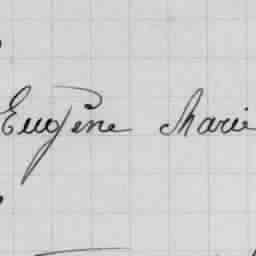 Eugène Marie